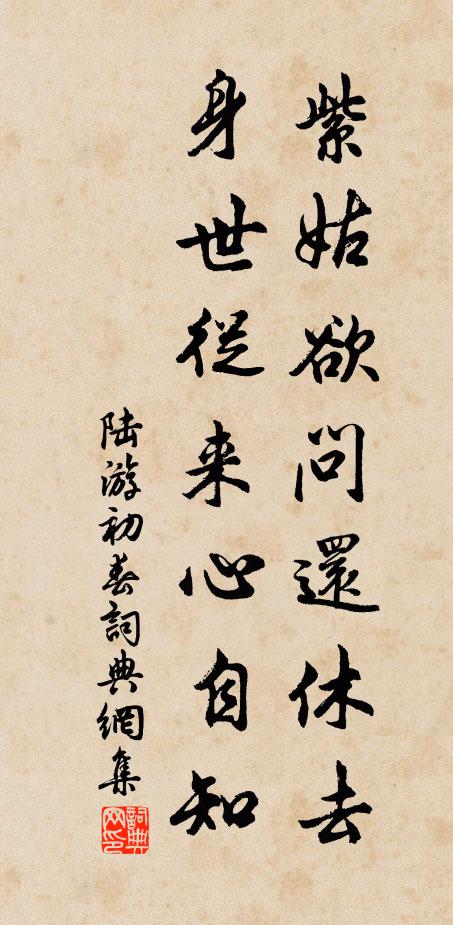 紫姑欲問還休去
身世從来心自知
陆游初春詞典網集
詞典网印